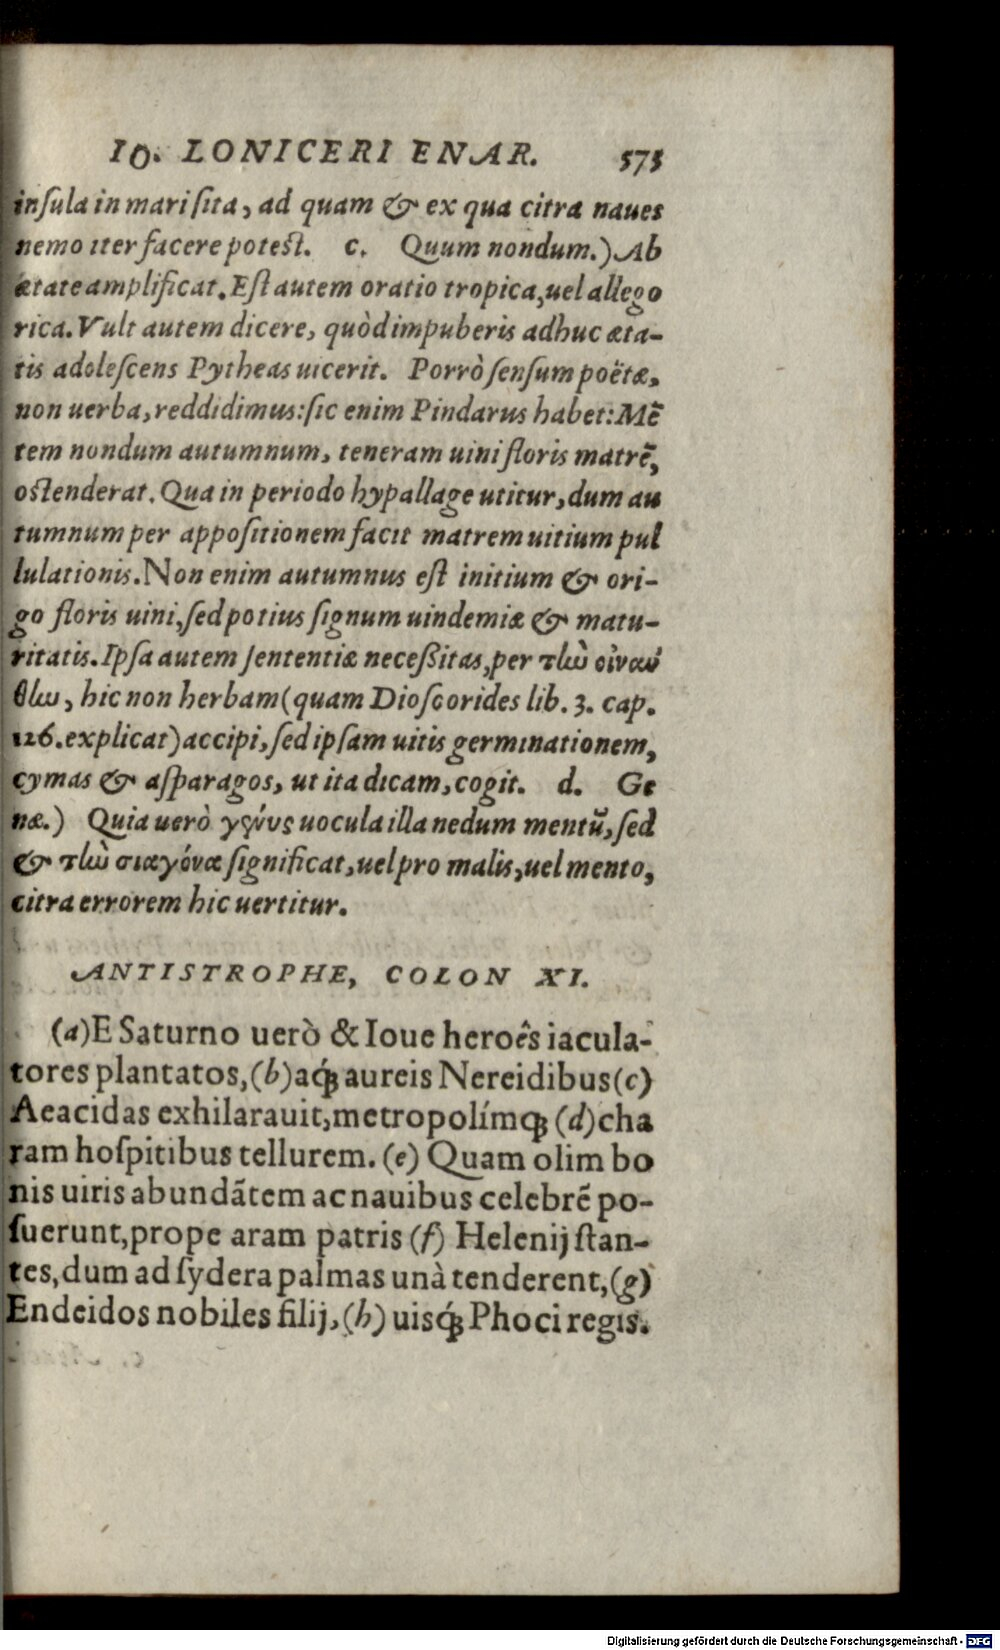 IO. LONICERI ENAR. 575
inſula in mari ſita, ad quam & ex qua citra naues
nemo iter facere poteſt. c. Quum nondum.) Ab
ætate amplificat. Eſt autem oratio tropica, uel allego
rica. Vult autem dicere, quòd impuberis adhuc æta-
tis adoleſcens Pytheas uicerit. Porrò ſenſum poëtæ,
non uerba, reddidimus: ſic enim Pindarus habet: Mẽ
tem nondum autumnum, teneram uini floris matrẽ,
oſtenderat. Qua in periodo hypallage utitur, dum au
tumnum per appoſitionem facit matrem uitium pul
lulationis. Non enim autumnus eſt initium & ori-
go floris uini, ſed potius ſignum uindemiæ & matu-
ritatis. Ipſa autem ſententiæ neceßitas, per τὼ οἰναν
θω, hic non herbam (quam Dioſcorides lib. 3. cap.
126. explicat) accipi, ſed ipſam uitis germinationem,
cymas & aſparagos, ut ita dicam, cogit. d. Ge
næ.) Quia uerò γένυς uocula illa nedum mentũ, ſed
& τὼ σιαγόνα ſignificat, uel pro malis, uel mento,
citra errorem hic uertitur.
ANTISTROPHE, COLON XI.
(a) E Saturno uerò & Ioue heroês iacula-
tores plantatos, (b) aq́ꝫ aureis Nereidibus (c)
Aeacidas exhilarauit, metropolímqꝫ (d) cha
ram hoſpitibus tellurem. (e) Quam olim bo
nis uiris abundãtem ac nauibus celebrẽ po-
ſuerunt, prope aram patris (f) Helenij ſtan-
tes, dum ad ſydera palmas unà tenderent, (g)
Endeidos nobiles filij, (h) uisq́ꝫ Phoci regis.
Digitalisierung gefördert durch die Deutsche Forschungsgemeinschaft - DFG